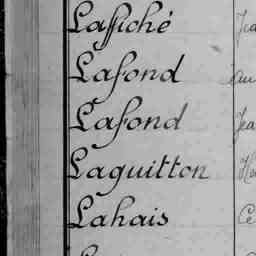 Laffiché
Lafond
Lafond
Laguitton
Lahais